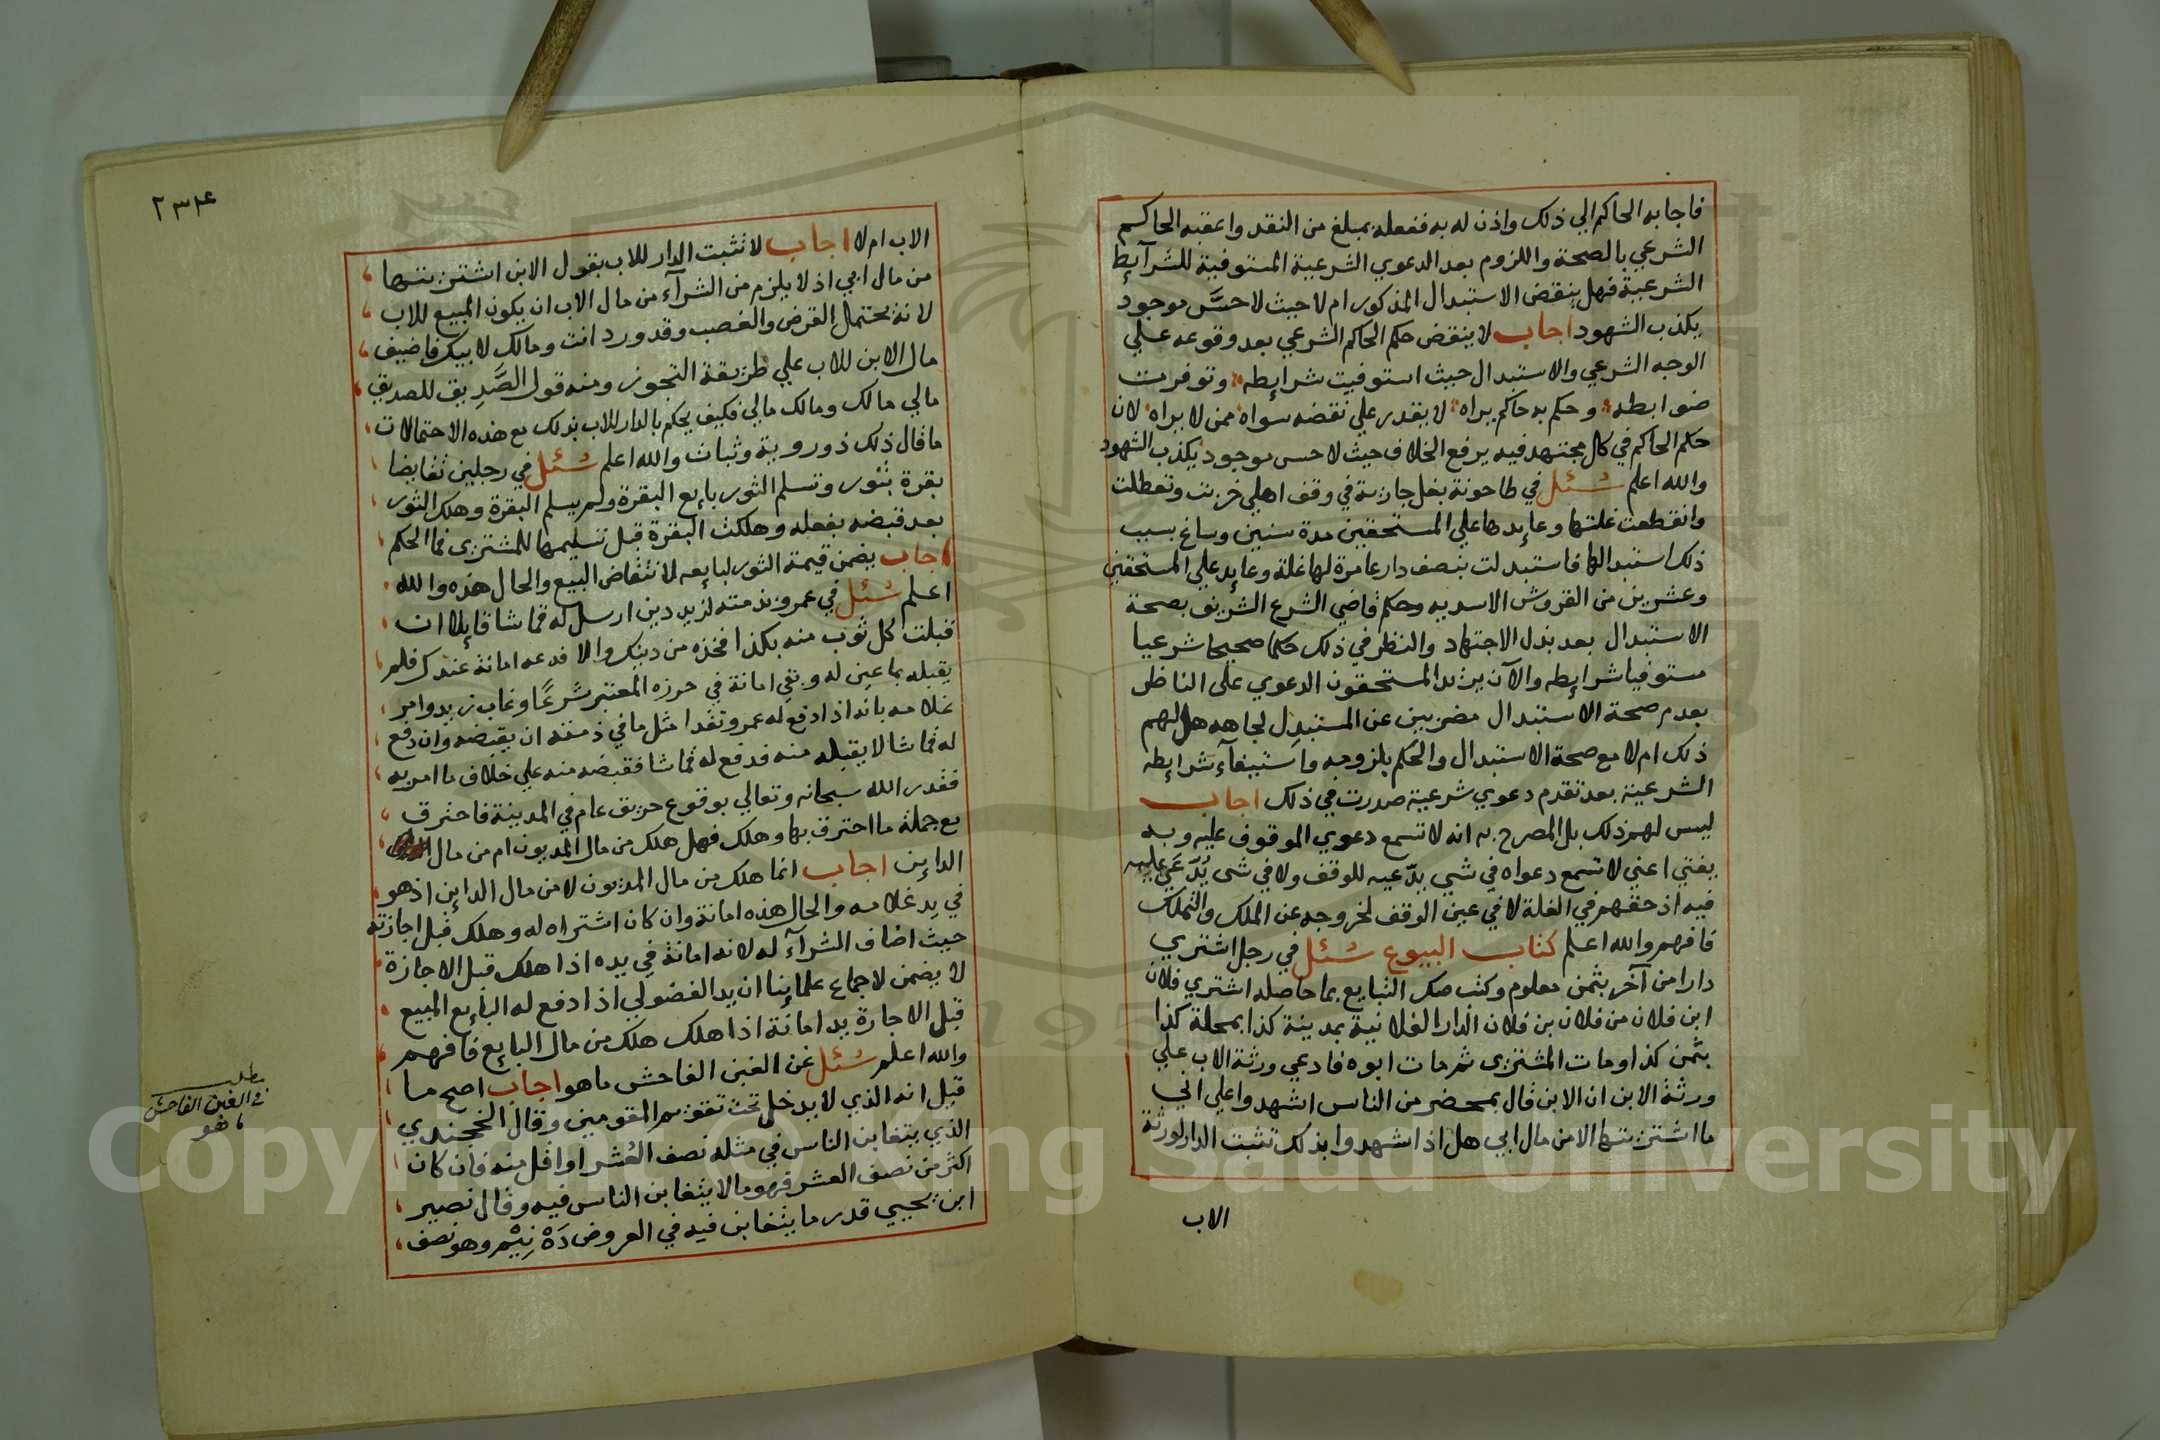 فاجابه الحاكم الي ذلك واذن له به ففعله بمبلغ من النقد واعقبه الحاكم
الشرعي بالصحة واللزوم بعد الدعوي الشرعية المستوفية للشرآيط
الشرعية فهل ينقض الاستبدال المذكور ام لا حيث لا حسَّ موجود
يكذب الشهود اجاب لا ينقض حكم الحاكم الشرعي بعد وقوعه علي
الوجه الشرعي والاستبدال حيث استوفيت شرايطه وتوفرت
ضوابطه وحكم به حاكم يراه لا يقدر علي نقضه سواه ممن لا يراه لان
حكم الحاكم في كل مجتهد فيه يرفع الخلاف حيث لا حس موجود يكذب الشهود
والله اعلم سئل في طاحونة بغل جارية في وقف اهلي خربت وتعطلت
وانقطعت غلتها وعايدها علي المستحقين مدة سنين وساغ بسبب
ذلك استبدالها فاستبدلت بنصف دار عامرة لها غلة وعايد علي المستحقين
وعشرين من القروش الاسديه وحكم قاضي الشرع الشريف بصحة
الاستبدال بعد بذل الاجتهاد والنظر في ذلك حكما صحيحا شرعيا
مستوفيا شرايطه والآن يريد المستحقون الدعوي علي الناظر
بعدم صحة الاستبدال مضربين عن المستبدِل لجاهه هل لهم
ذلك ام لا مع صحة الاستبدال والحكم بلزومه واستيفآء شرايطه
الشرعية بعد تقدم دعوي شرعية صدرت في ذلك اجاب
ليس لهم ذلك بل المصرح به انه لا تسمع دعوي الموقوف عليه وبه
يفتي اعني لا تسمع دعواه في شي يدّعيه للوقف ولا في شي يُدّعَي عليه
فيه اذ حقهم في الغلة لا في عين الوقف لخروجه عن الملك والتملك
فافهم والله اعلم كتاب البيوع سئل في رجل اشتري
دارا من آخر بثمن معلوم وكتب صك التبايع بما حاصله اشتري فلان
ابن فلان من فلان بن فلان الدار الفلانية بمدينة كذا بمحلة كذا
بثمن كذا ومات المشتري ثم مات ابوه فادعي ورثة الاب علي
ورثة الابن ان الابن قال بمحضر من الناس اشهدوا علي اني
ما اشتريتها الا من مال ابي هل اذا شهدوا بذلك تثبت الدار لورثة
الاب
٢٣٤
الاب ام لا اجاب لا تثبت الدار للاب بقول الابن اشتريتها
من مال ابي اذ لا يلزم من الشرآء من مال الاب ان يكون المبيع للاب
لانه يحتمل القرض والغصب وقد ورد انت ومالك لابيك فاضيف
مال الابن للاب علي طريقة التجوز ومنه قول الصَّدِيق للصديق
مالي مالك ومالك مالي فكيف يحكم بالدار للاب بذلك مع هذه الاحتمالات
ما قال ذلك ذو روية وثبات والله اعلم سئل في رجلين تقايضا
بقرة بثور وتسلم الثور بايع البقرة ولم يسلم البقرة وهلك الثور
بعد قبضه بفعله وهلكت البقرة قبل تسليمها للمشتري فما الحكم
اجاب يضمن قيمة الثور لبايعه لانتقاض البيع والحال هذه والله
اعلم سئل في عمرو بذمته لزيد دين ارسل له قماشا قايلا ان
قبلت كل ثوب منه بكذا فخذه من دينك والا فدعه امانة عندك فلم
يقبله بما عين له وبقي امانة في حرزه المعتبر شرعًا وغاب زيد وامر
غلامه بانه اذا دفع له عمرو نقدا مثل ما في ذمته ان يقبضه وان دفع
له قماشا لا يقبله منه فدفع له قماشا فقبضه منه علي خلاف ما امر به
فقدر الله سبحانه وتعالي بوقوع حريق عام في المدينة فاحترق
مع جملة ما احترق بها وهلك فهل هلك من مال المديون ام من مال
الداين اجاب انما هلك من مال المديون لا من مال الداين اذ هو
في يد غلامه والحال هذه امانة وان كان اشتراه له وهلك قبل اجازته
حيث اضاف الشرآء له لانه امانة في يده اذا هلك قبل الاجازة
لا يضمن لاجماع علماينا ان يد الفضولي اذا دفع له البايع المبيع
قبل الاجازة يد امانة اذا هلك هلك من مال البايع فافهم
والله اعلم سئل عن الغبن الفاحش ما هو اجاب اصح ما
قيل انه الذي لا يدخل تحت تقويم المقومين وقال الخجندي
الذي يتغابن الناس في مثله نصف العُشر او اقل منه فان كان
اكثر من نصف العشر فهو مما لا يتغابن الناس فيه وقال نصير
ابن يحيي قدر ما يتغابن فيه في العروض دَهْ نِيْم وهو نصف
مطلب
في الغبن الفاحش
ما هو
Copyright © King Saud University